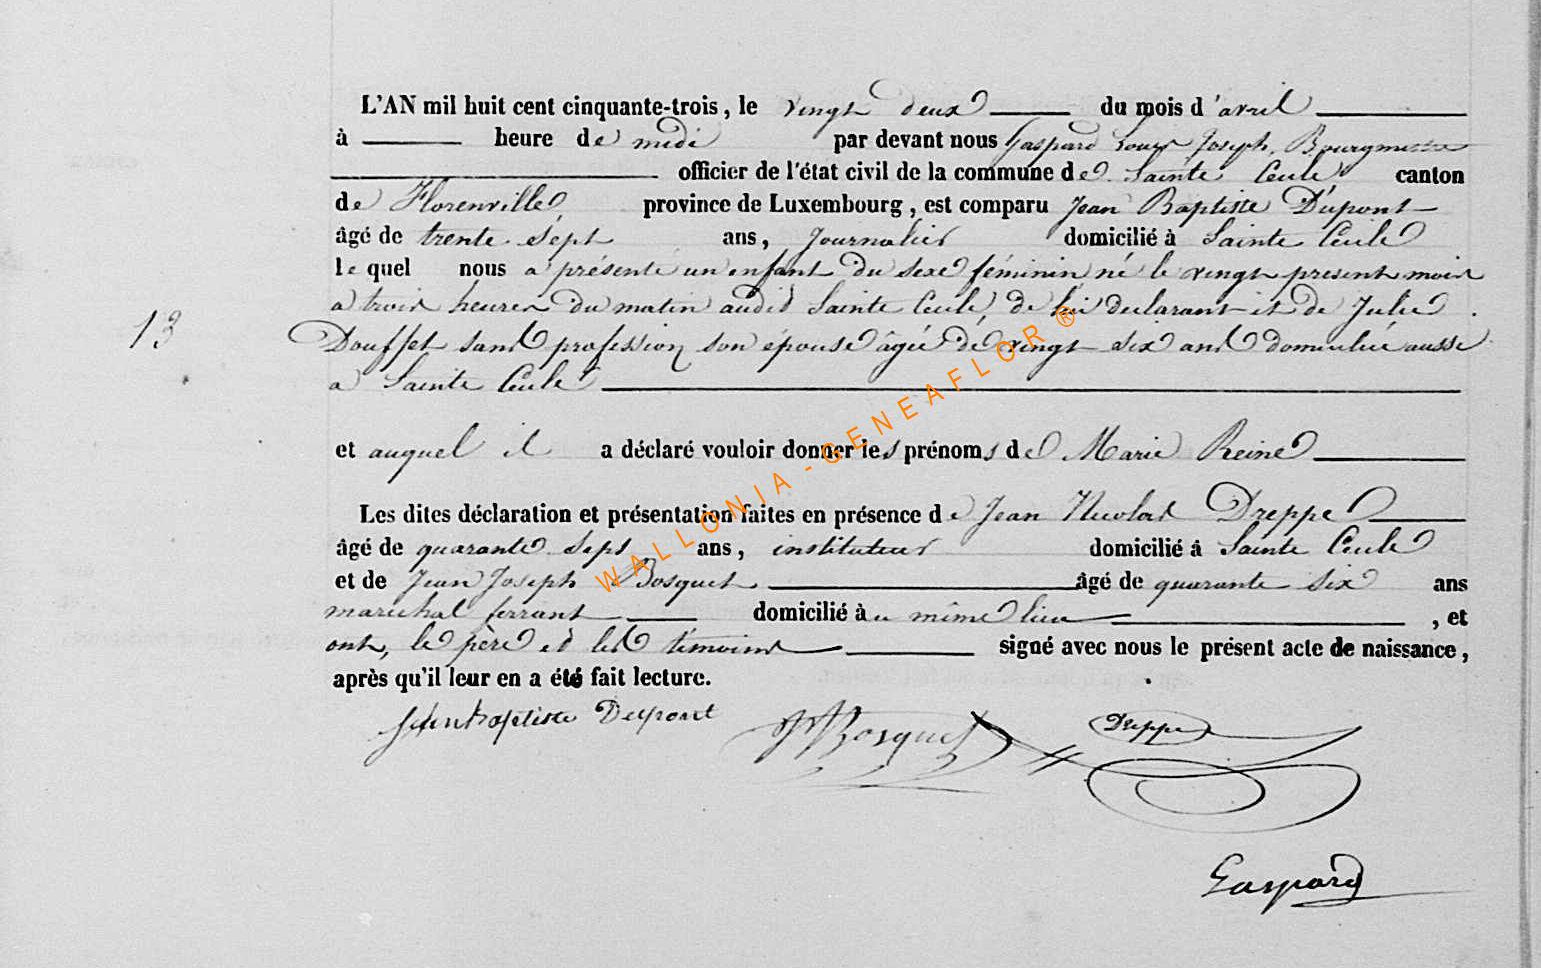 L'AN mil huit cent cinquante-trois, le vingt deux du mois d'avril
à heure de midi par devant nous Gaspard Louis Joseph, Bourgmestre
officier de l'état civil de la commune de Sainte Cecile canton
de Florenville province de Luxembourg, est comparu Jean Baptiste Dupont
âgé de trente sept ans, Journalier domicilié à Sainte Cecile
le quel nous a présenté un enfant du sexe féminin né le vingt present mois
a trois heures du matin audit Sainte Cecile, de lui declarant et de Julie
13
Douffet sans profession son épouse âgée de vingt six ans domiciliée aussi
a Sainte Cecile
et auquel il a déclaré vouloir donner les prénoms de Marie Reine
Les dites déclaration et présentation faites en présence de Jean Nicolas Dreppe
âgé de quarante sept ans, instituteur domicilié à Sainte Cecile
et de Jean Joseph Bosquet âgé de quarante six ans
marechal ferrant domicilié à au même lieu, et
ont, le père et les témoins signé avec nous le présent acte de naissance,
après qu'il leur en a été fait lecture.
Jean Baptiste Dupont JJBosquet Dreppe
Gaspard
WALLONIA-GENEAFLOR ®